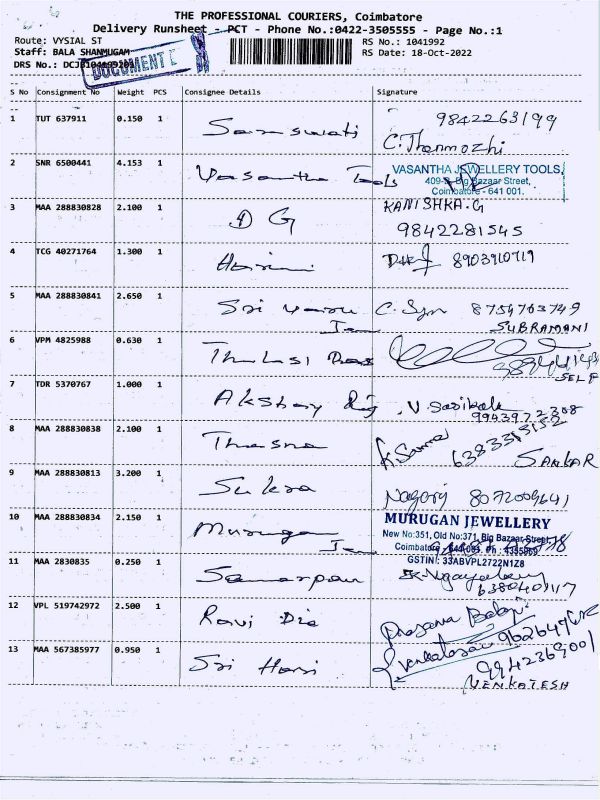 THE PROFESSIONAL COURIERS, Coimbatore
Delivery Runsheet - PCT - Phone No.:0422-3505555 - Page No.:1
Route: VYSIAL ST RS No.: 1041992
Staff: BALA SHANMUGAM RS Date: 18-Oct-2022
DRS No.:
DOCUMENT
S No Consignment No Weight PCS Consignee Details Signature
1 TUT 637911 0.150 1 Saraswati 9842263199
C. Thenmozhi
2 SNR 6500441 4.153 1 Vasantha Tools VASANTHA JEWELLERY TOOLS,
409-B, Big Bazaar Street,
Coimbatore - 641 001.
3 MAA 288830828 2.100 1 D G KANISHKA.G
9842281545
4 TCG 40271764 1.300 1 8903910719
5 MAA 288830841 2.650 1 Sri 8754763749
SUBRAMANI
6 VPM 4825988 0.630 1 Thulasi
SELF
7 TDR 5370767 1.000 1 Akshay V. Sasikala
9943972308
8 MAA 288830838 2.100 1 6383313152
SANKAR
9 MAA 288830813 3.200 1 Sukra 8072009641
10 MAA 288830834 2.150 1 Murugan MURUGAN JEWELLERY
New No:351, Old No:371, Big Bazaar Street,
Coimbatore
GSTIN: 33ABVPL2722N1Z8
11 MAA 2830835 0.250 1 Samarpan
6380401117
12 VPL 519742972 2.500 1 Ravi Die
13 MAA 567385977 0.950 1 Sri Hari 9942369001
VENKATESH